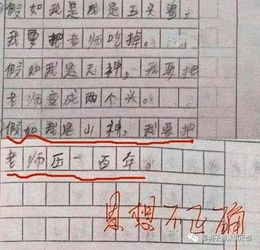 假如我是我是五头兽,
我要把老师吃掉。
假如我是天神,我要把
老师变成两个头。
假如我是山神,我要把
老师压一百年。
思想不正确